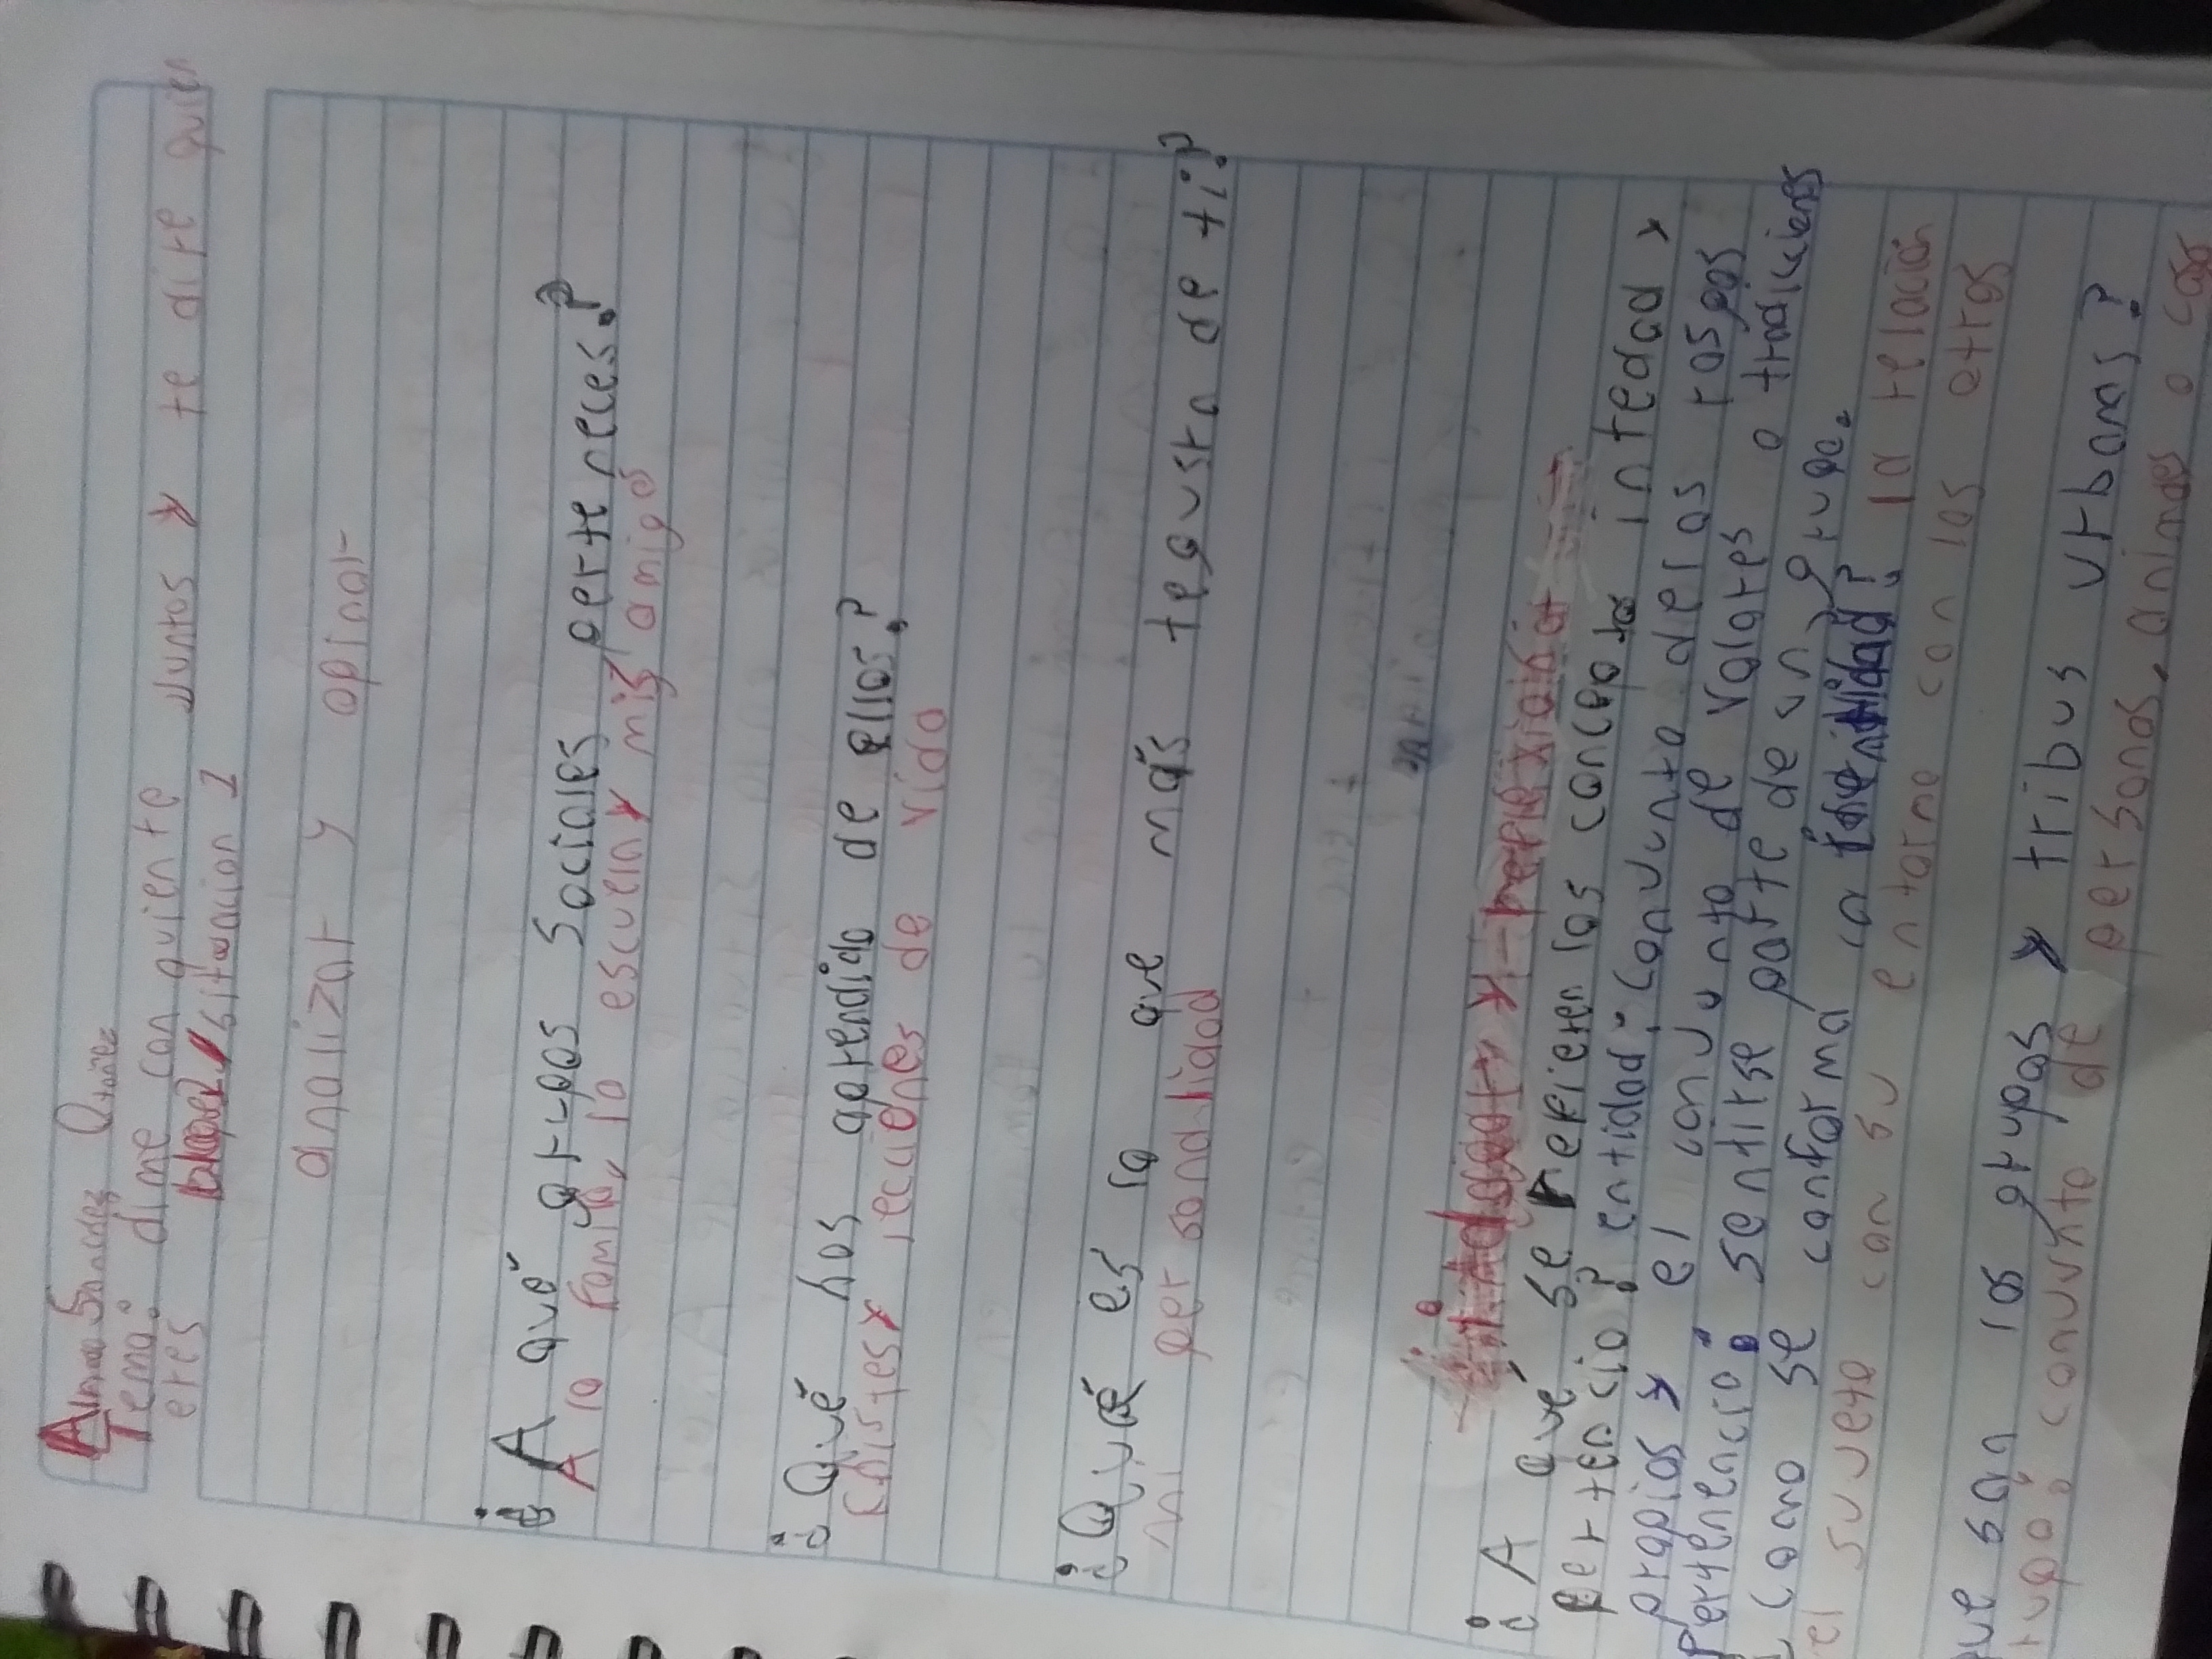 Alma Sanchez
Tema: dime con quien te juntas y te dire quien
eres
sitaacion 1
analizar y opinar
¿A qué grupos Sociales perteneces?
A la Familia, la escuela y mis amigos
¿Qué has aprendido de ellos?
Chistes y lecciones de vida
¿Qué es lo que más te gusta de ti?
Mi personalidad
¿A qué se refieren los concepto intedad y
pertencia? entidad: conjunto de los rasgos
propios y el conjunto de valores o tradiciones
Pertenencia: sentirse parte de un grupo.
como se conforma la identidad? la relación
el sujeto con su entorno con los otros
que son los grupos y tribus urbanas?
rupo: conjunto de personas, animales o cosas